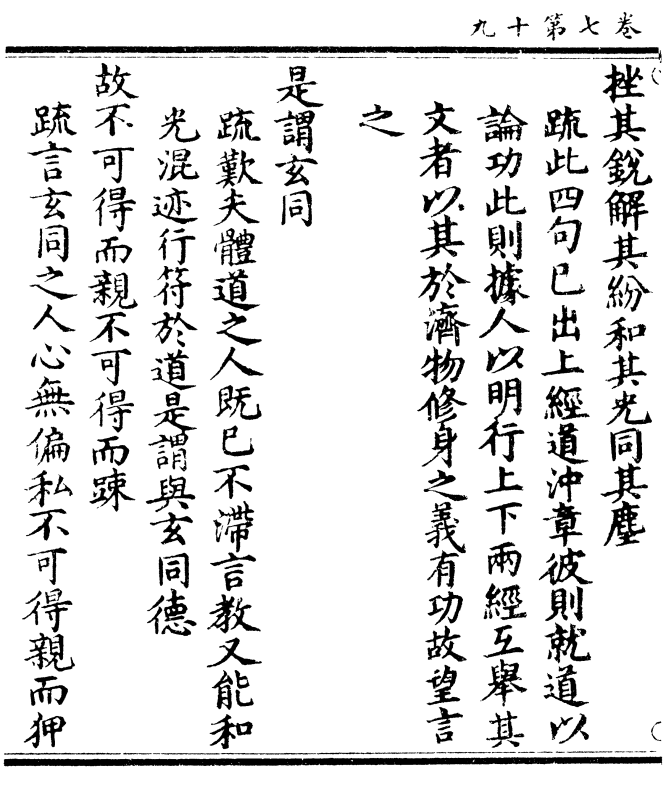 卷七第十九
挫其銳解其紛和其光同其塵
疏此四句已出上經道沖章彼則就道以
論功此則據人以明行上下兩經互舉其
文者以其於濟物修身之義有功故望言
之
是謂玄同
疏歎夫體道之人既已不滯言教又能和
光混迹行符於道是謂與玄同德
故不可得而親不可得而踈
疏言玄同之人心無偏私不可得親而狎